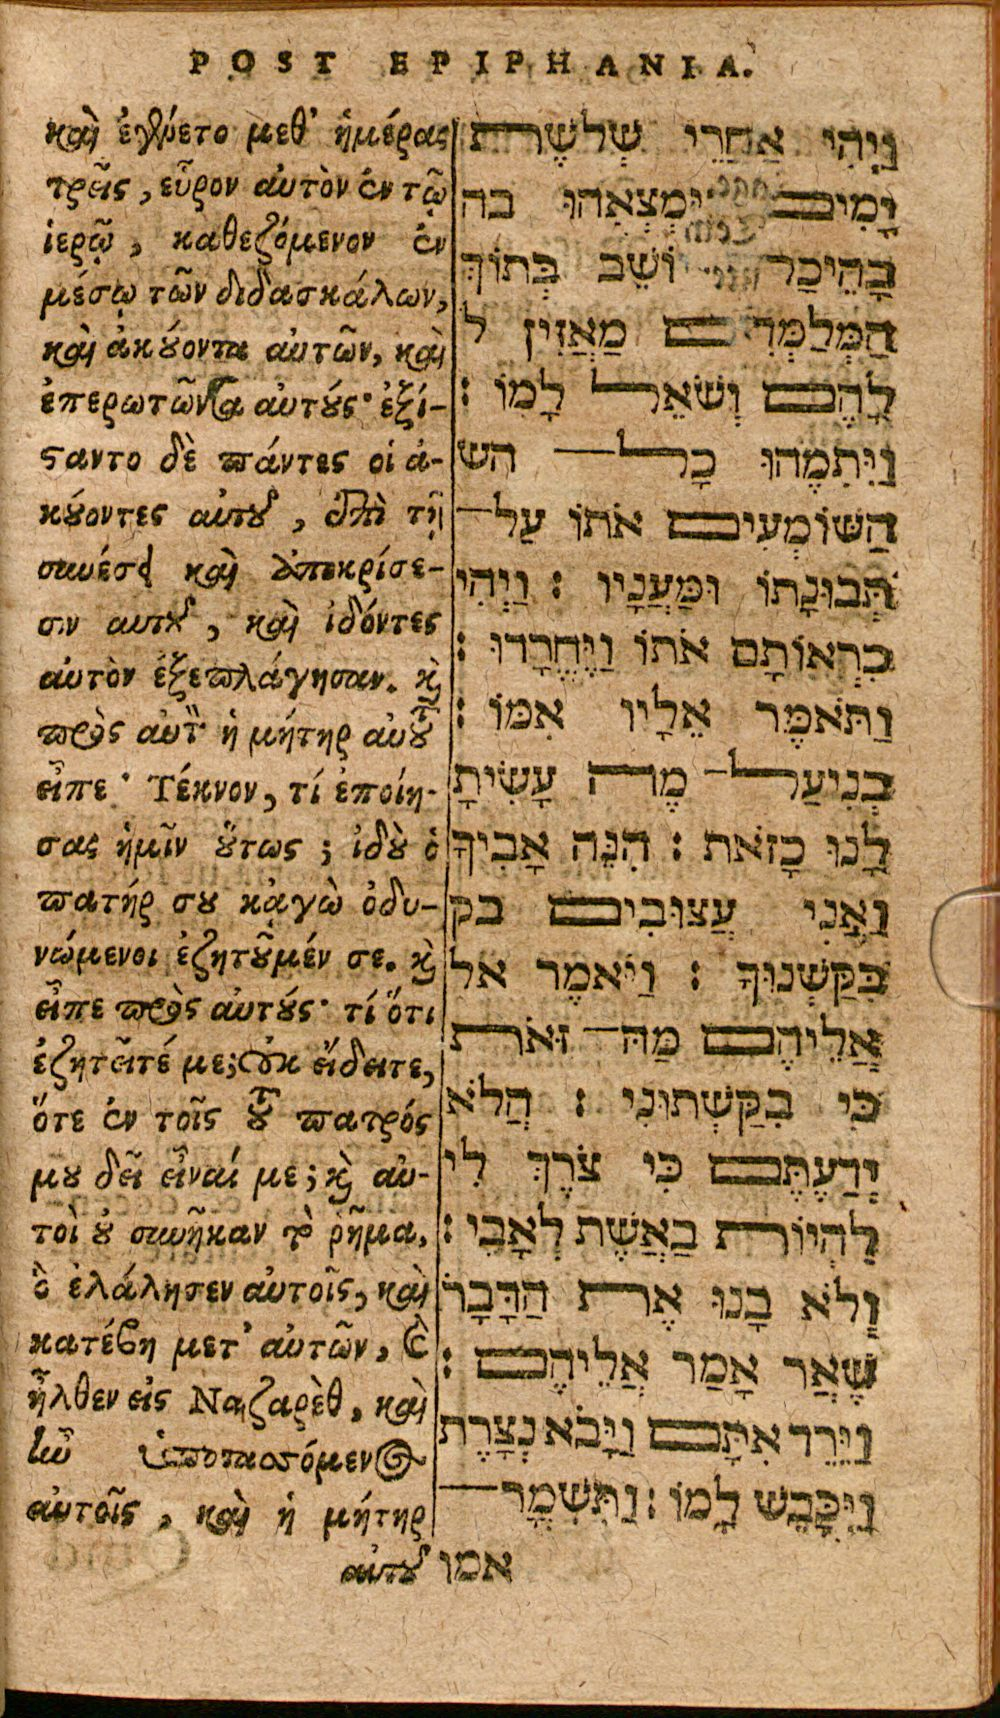 POST EPIPHANIA.
καὶ ἐγένετο μεθ' ἡμέρας
τρεῖς, εὗρον αὐτὸν ἐν τῷ
ἱερῷ, καθεζόμενον ἐν
μέσῳ τῶν διδασκάλων,
καὶ ἀκούοντα αὐτῶν, καὶ
ἐπερωτῶντα αὐτούς· ἐξί-
σαντο δὲ πάντες οἱ ἀ-
κούοντες αὐτοῦ, ἐπὶ τῇ
συνέσει καὶ ἀποκρίσε-
σιν αὐτοῦ, καὶ ἰδόντες
αὐτὸν ἐξεπλάγησαν. καὶ
πρὸς αὐτὸν ἡ μήτηρ αὐτοῦ
εἶπε· Τέκνον, τί ἐποίη-
σας ἡμῖν οὕτως; ἰδοὺ ὁ
πατήρ σου κᾀγὼ ὀδυ-
νώμενοι ἐζητοῦμέν σε. καὶ
εἶπε πρὸς αὐτούς· τί ὅτι
ἐζητεῖτέ με; οὐκ ᾔδειτε,
ὅτε ἐν τοῖς τοῦ πατρός
μου δεῖ εἶναί με; καὶ αὐ-
τοὶ οὐ συνῆκαν τὸ ῥῆμα,
ὃ ἐλάλησεν αὐτοῖς, καὶ
κατέβη μετ' αὐτῶν, καὶ
ἦλθεν εἰς Ναζαρὲθ, καὶ
ἦν ὑποτασσόμενος
αὐτοῖς, καὶ ἡ μήτηρ
αὐτοῦ
וַיְהִי אַחֲרֵי שְׁלשֶׁת
יָמִים יִּמְצָאֻהוּ בה
בָּהֵיכָל יוֹשֵׁב בְּתוֹךְ
הַמְּלַמְּדִים מַאֲזִין ל
לָהֶם וְשֹׁאֵל לָמוֹ :
וַיִּתְמְהוּ כָל הש
הַשּׁוֹמְעִים אֹתוֹ עַל
תְּבוּנָתוֹ וּמַּעֲנָיו : וַיְהִי
כִּרְאוֹתָם אֹתוֹ וַיֶּחֱרָדוּ :
וַתֹּאמֶר אֵלָיו אִמּוֹ :
בְּנִי עַל מֶה עָשִׂיתָ
לָנוּ כָזֹאת : הִנֵּה אָבִיךָ
וַאֲנִי עֲצוּבִים בק
בִּקַּשְׁנוּךָ : וַיֹּאמֶר אל
אֲלֵיהֶם מַּה זּאֹת
כִּי בִקַּשְׁתוּנִי : הֲלֹא
יְדַעְתֶּם כִּי צֹרֶךְ לִי
לִהְיוֹת בַּאֲשֶׁת לְאָבִי :
וְלֹא בָנוּ אֶת הַדָּבָר
שֶׁאֲר אָמַר אֲלֵיהֶם :
וַיֵּרֵד אִתָּם וַיָּבֹא נְצָרֶת
וַיִּכָּבֵשׁ לָמוֹ : וַתִּשְׁמֹר
אמו